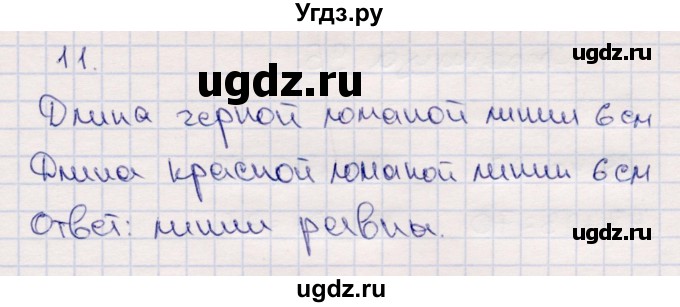 Угдз.ру
11.
ugdz.ru
ugdz.ru
Длина черной ломаной линии 6 см
ugdz.ru
Длина красной ломаной линии 6 см
Ответ: линии равны.
ugdz.ru
ugdz.ru